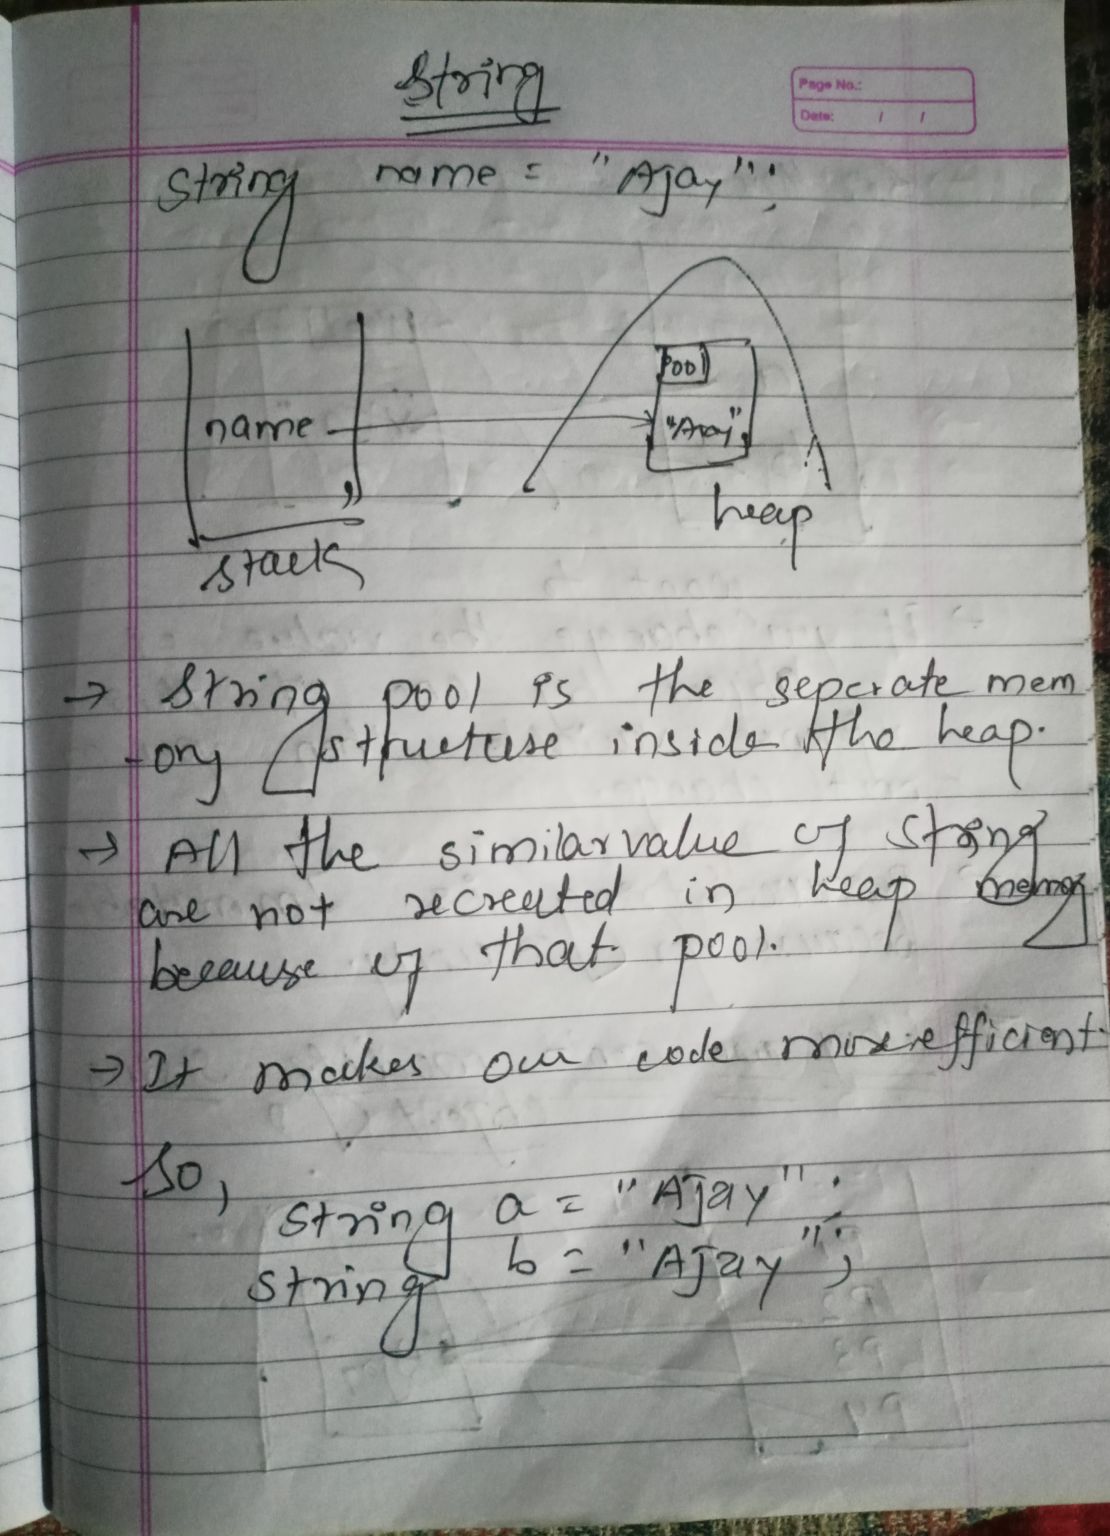 String
Page No.:
Date: / /
String name = "Ajay";
Pool
name
"Ajay"
heap
stack
→ String pool is the seperate mem
-ory structure inside the heap.
→ All the similar value of string
are not recreated in heap memory
because of that pool.
→ It makes our code more efficient.
So,
String a = "Ajay";
String b = "Ajay";